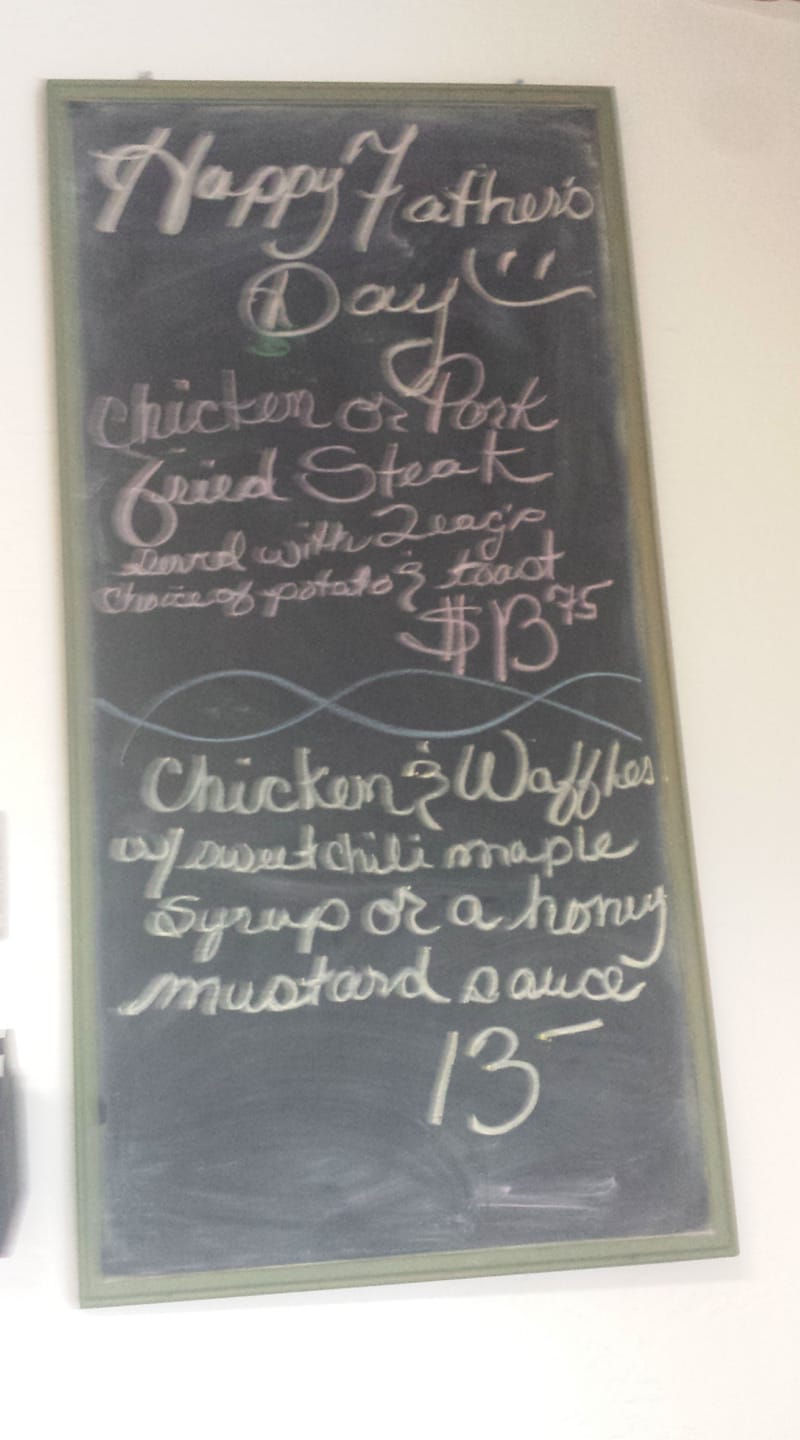 Happy Father's
Day
Chicken or Pork
fried Steak
served with 2 eag's
choice of potato & toast
$13 75
Chicken & Waffles
w/ sweet chili maple
syrup or a honey
mustard sauce
13 –